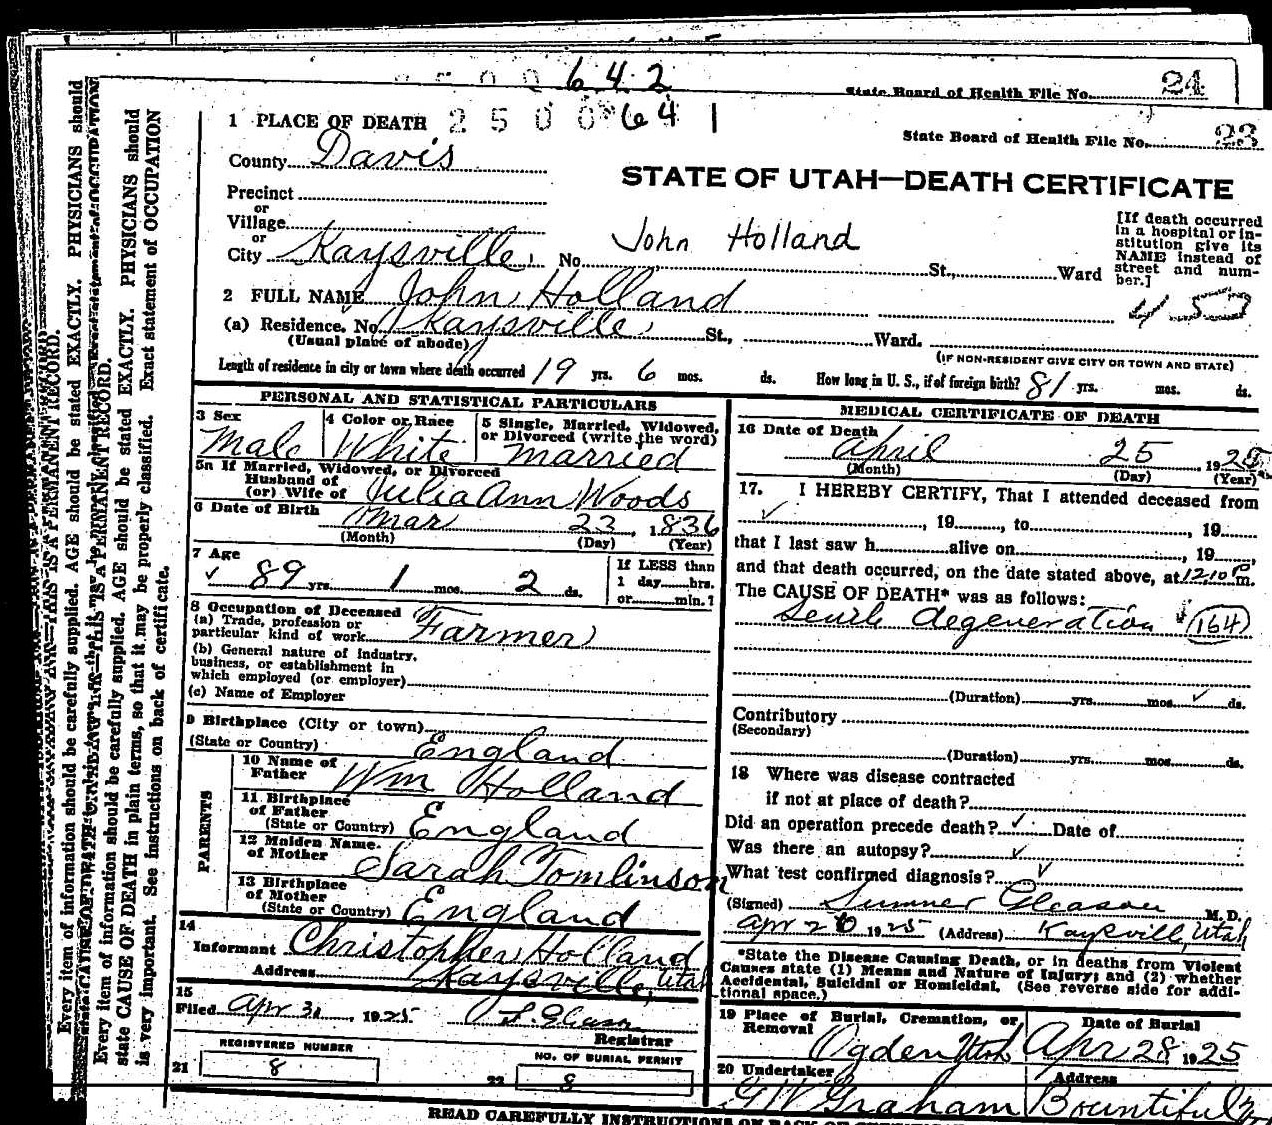 642
State Board of Health File No. 24
1 PLACE OF DEATH 2500 641
State Board of Health File No. 23
County Davis
STATE OF UTAH—DEATH CERTIFICATE
Precinct
or
Village
or
City Kaysville No. St., Ward
John Holland
[If death occurred in a hospital or institution give its NAME instead of street and number.]
2 FULL NAME John Holland
453
(a) Residence. No. Kaysville St., Ward.
(Usual place of abode)
(IF NON-RESIDENT GIVE CITY OR TOWN AND STATE)
Length of residence in city or town where death occurred 19 yrs. 6 mos. ds. How long in U. S., if of foreign birth? 81 yrs. mos. ds.
PERSONAL AND STATISTICAL PARTICULARS
3 Sex Male
4 Color or Race White
5 Single, Married, Widowed, or Divorced (write the word) Married
5a If Married, Widowed, or Divorced
Husband of
(or) Wife of Julia Ann Woods
6 Date of Birth Mar 23, 1836
(Month) (Day) (Year)
7 Age 89 yrs. 1 mos. 2 ds.
If LESS than
1 day hrs.
or min.?
8 Occupation of Deceased
(a) Trade, profession or
particular kind of work Farmer
(b) General nature of industry,
business, or establishment in
which employed (or employer)
(c) Name of Employer
9 Birthplace (City or town)
(State or Country) England
PARENTS
10 Name of
Father Wm Holland
11 Birthplace
of Father
(State or Country) England
12 Maiden Name
of Mother Sarah Tomlinson
13 Birthplace
of Mother
(State or Country) England
14
Informant Christopher Holland
Address Kaysville, Utah
15
Filed Apr 31, 1925 S Gleason
Registrar
REGISTERED NUMBER
21 8
NO. OF BURIAL PERMIT
22 8
MEDICAL CERTIFICATE OF DEATH
16 Date of Death
April 25, 1925
(Month) (Day) (Year)
17. I HEREBY CERTIFY, That I attended deceased from
, 19, to , 19
that I last saw h alive on , 19
and that death occurred, on the date stated above, at 12:10 P.m.
The CAUSE OF DEATH* was as follows:
Senile degeneration 164
(Duration) yrs. mos. ds.
Contributory
(Secondary)
(Duration) yrs. mos. ds.
18 Where was disease contracted
if not at place of death?
Did an operation precede death? Date of
Was there an autopsy?
What test confirmed diagnosis?
(Signed) Sumner Gleason M. D.
Apr 26 1925 (Address) Kaysville, Utah
*State the Disease Causing Death, or in deaths from Violent
Causes state (1) Means and Nature of Injury; and (2) whether
Accidental, Suicidal or Homicidal. (See reverse side for additional space.)
19 Place of Burial, Cremation, or
Removal Ogden Utah
Date of Burial
Apr 28 1925
20 Undertaker
G W Graham
Address
Bountiful
READ CAREFULLY INSTRUCTIONS ON BACK OF
Every item of information should be carefully supplied. AGE should be stated EXACTLY. PHYSICIANS should
THIS IS A PERMANENT RECORD.
Every item of information should be carefully supplied. AGE should be stated EXACTLY. PHYSICIANS should
state CAUSE OF DEATH in plain terms, so that it may be properly classified. Exact statement of OCCUPATION
is very important. See instructions on back of certificate.